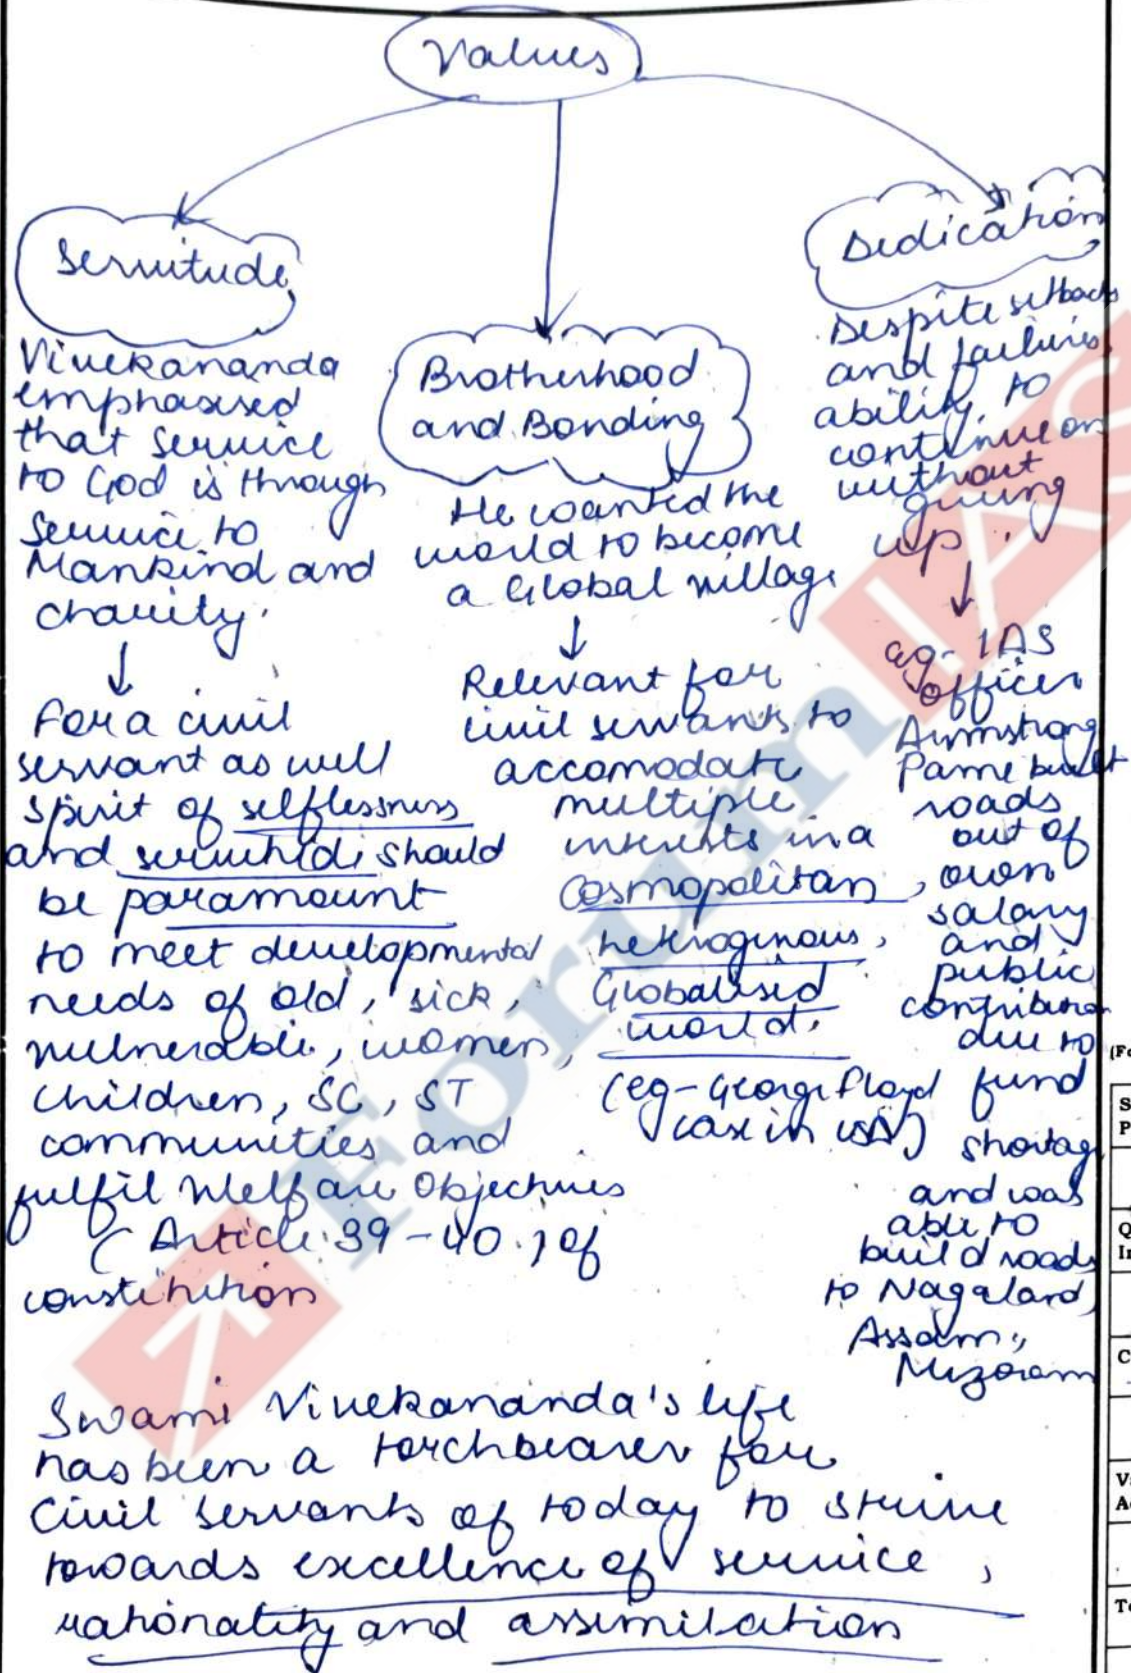 Values
Servitude
Vivekananda
emphasised
that service
to God is through
Service to
Mankind and
charity.
For a civil
servant as well
spirit of selflessness
and servitude should
be paramount
to meet developmental
needs of old, sick,
vulnerable, women,
children, SC, ST
communities and
fulfil Welfare Objectives
(Article 39-40) of
constitution
Brotherhood
and Bonding
He wanted the
world to become
a Global village
Relevant for
civil servants to
accomodate
multiple
interests in a
Cosmopolitan,
heterogenous,
Globalised
world.
(eg- George Floyd
case in USA)
Dedication
Despite setbacks
and failures
ability to
continue on
without
giving
up.
eg- IAS
officer
Armstrong
Pame built
roads
out of
own
salary
and
public
contribution
due to
fund
shortage
and was
able to
build roads
to Nagaland,
Assam,
Mizoram
Swami Vivekananda's life
has been a torchbearer for
Civil Servants of today to strive
towards excellence of service,
rationality and assimilation
Forum IAS
(Fo
S
P
Q
In
C
V
A
To